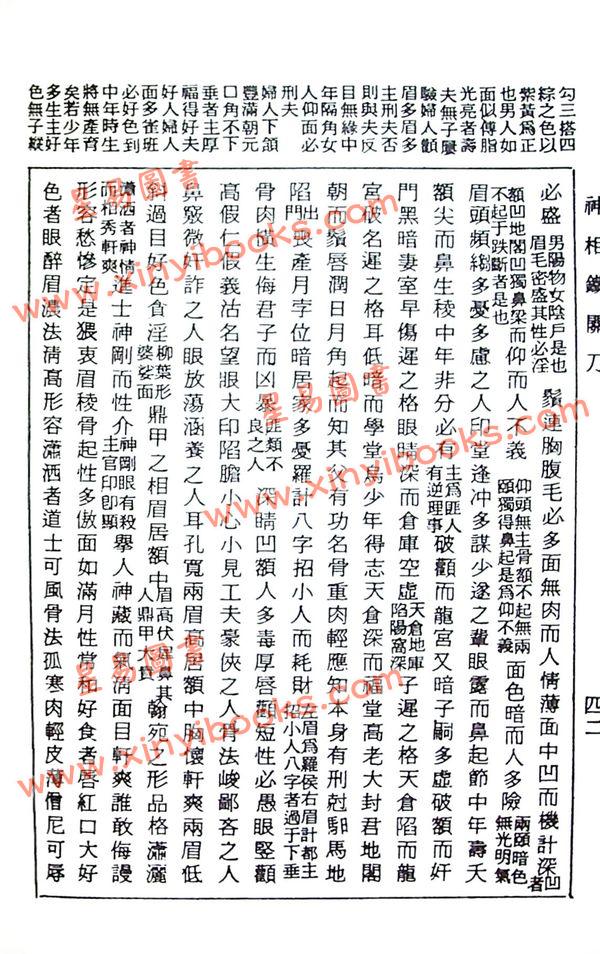 神相鐵關刀
四二
勾三搭四
棕之色以
紫黃爲正
也男人如
面似傅脂
光亮者壽
夫無子屢
驗婦人顴
眉多眉多
主刑夫否
則與夫反
目無緣中
年隔角女
人仰面必
刑夫
婦人下頷
豐滿朝元
口角不下
垂者主厚
福得好夫
好人婦人
面多雀班
必好色到
中年時生
將無產育
矣若少年
多生主好
色無子縱
必盛男陽物女陰戶是也眉毛密盛其性必淫鬚連胸腹毛必多面無肉而人情薄面中凹而機計深凹者
額凹地閣凹獨鼻梁而仰而人不義不起于跌斷者是也仰頭無主骨額不起無兩頤獨得鼻起是爲仰不義面色暗而人多險兩頤暗色無光明氣
眉頭頻縐多憂多慮之人印堂逢冲多謀少遂之輩眼露而鼻起節中年壽夭
額尖而鼻生稜中年非分必有主爲匪人有逆理事破顴而龍宮又暗子嗣多虛破額而奸
門黑暗妻室早傷遲之格眼晴深而倉庫空虛天倉地庫陷陽窩深子遲之格天倉陷而龍
宮破名遲之格耳低暗而學堂爲少年得志天倉深而福堂高老大封君地閣
朝而鬚唇潤日月角起而知其父有功名骨重肉輕應知本身有刑尅馹馬地
陷出門喪產月孛位暗居家多憂羅計八字招小人而耗財左眉爲羅侯右眉計都主招小人八字者過于下垂
骨肉橫生侮君子而凶暴匪類不良之人深晴凹額人多毒厚唇顴短性必愚眼竪顴
高假仁假義沽名望眼大印陷膽小心小見工夫豪俠之人骨法峻鄙吝之人
鼻竅微奸詐之人眼放蕩涵養之人耳孔寬兩眉高居額中胸懷軒爽兩眉低
斜過目好色貪淫柳葉形婆娑面鼎甲之相眉居額中眉高伏犀鼻其人鼎甲大貴翰宛之形品格瀟灑
瀟洒者神情而相秀軒爽進士神剛而性介神剛眼有殺主官印卽顯擧人神藏而氣淸面目軒爽誰敢侮謾
形容愁慘定是猥衷眉稜骨起性多傲面如滿月性常和好食者唇紅口大好
色者眼醉眉濃法淸高形容瀟洒者道士可風骨法孤寒肉輕皮薄僧尼可辱
星易圖書
www.xinyibooks.com
星易圖書
www.xinyibooks.com
星易圖書
www.xinyibooks.com